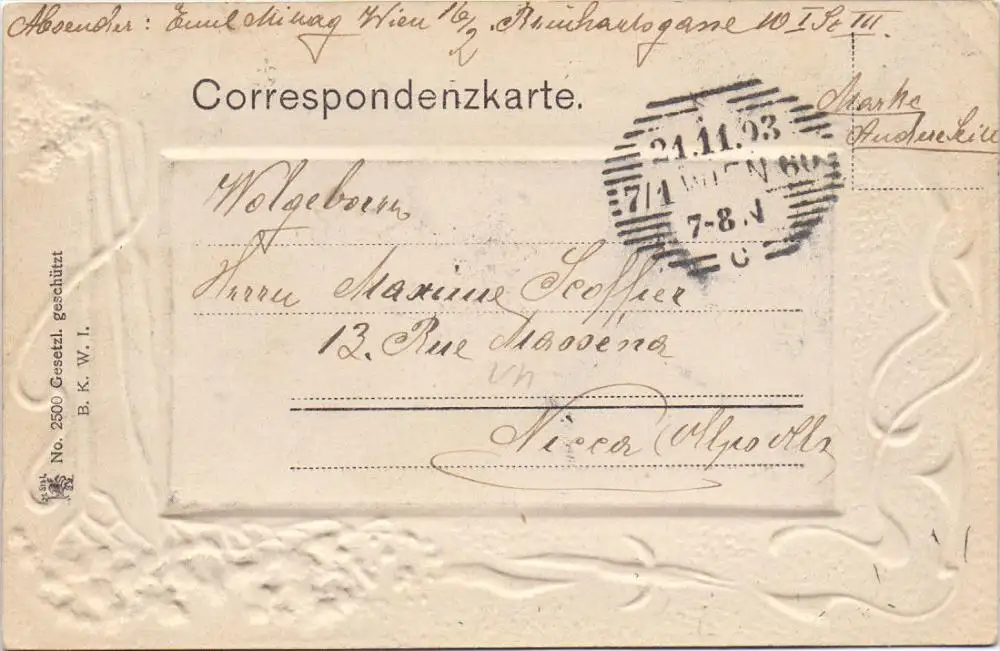 Absender: Emil Wien 16/2. Reinhartsgasse 10 I St III.
Correspondenzkarte.
Marke
Andere Seite
21.11.03
7/1 WIEN 60
7-8 N
C
Wolgeboren
Herrn Maxime Scoffier
13. Rue Massena
Nizza (Alps Mts
No. 2500 Gesetzl. geschützt
B. K. W. I.